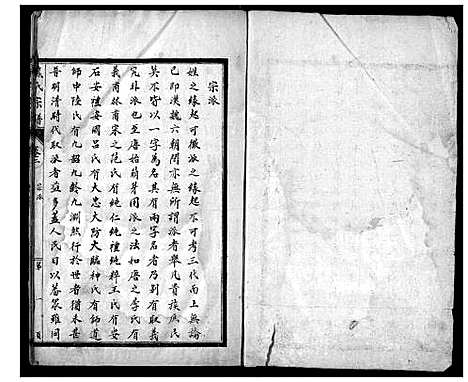 宗派
姓之緣起可徵派之緣起不可考三代而上無論
已即漢魏六朝間亦無所謂派者舉凡貴族庶民
莫不皆以一字為名具有兩字名者乃別有取義
究非派也至唐始萌芽用派之法如唐之李氏有
義甫林甫宋之范氏有純仁純禮純粹王氏有安
石安禮安國呂氏有大忠大防大臨种氏有師道
師中陸氏有九韶九齡九淵然行於世者猶未甚
普明清時代取派者遂多蓋人民日以蕃眾雖同
氏宗譜
卷三
宗派
第一頁